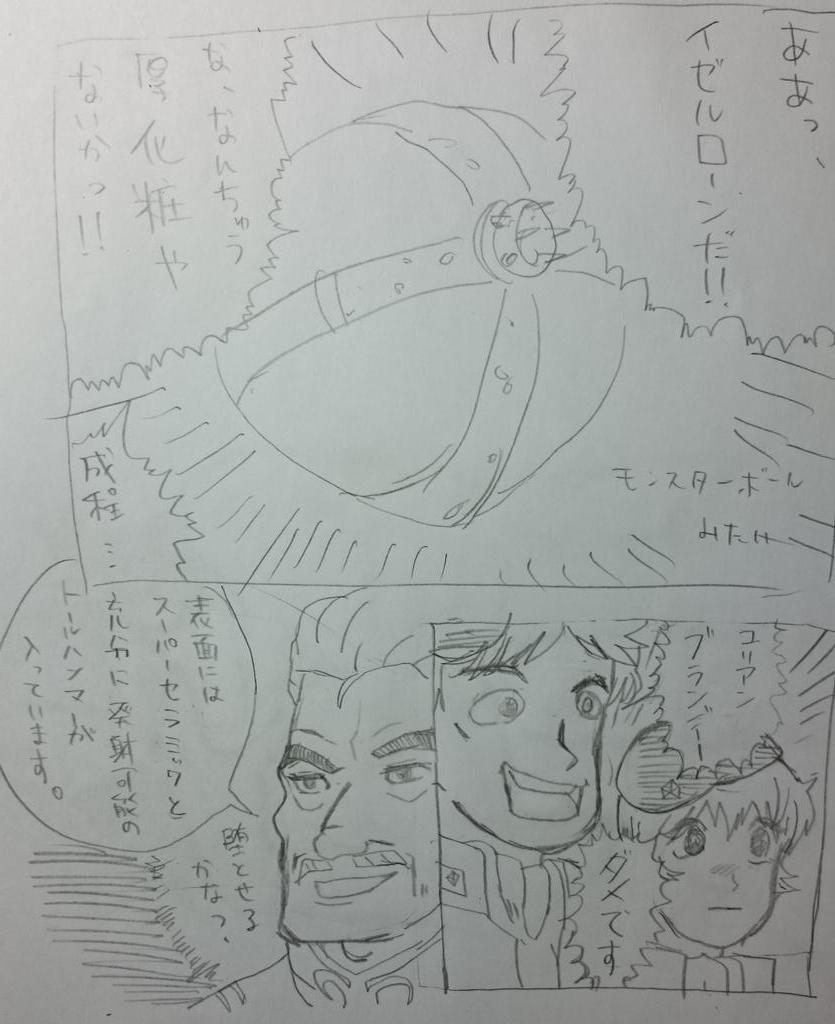 ああっ、
イゼルローンだ!!
な、なんちゅう
厚化粧や
ないかっ!!
モンスターボール
みたい
成程…
ユリアン
ブランデー
ダメです
表面には
スーパーセラミックと
充分に発射可能の
トールハンマーが
入っています。
堕とせる
かなっ、